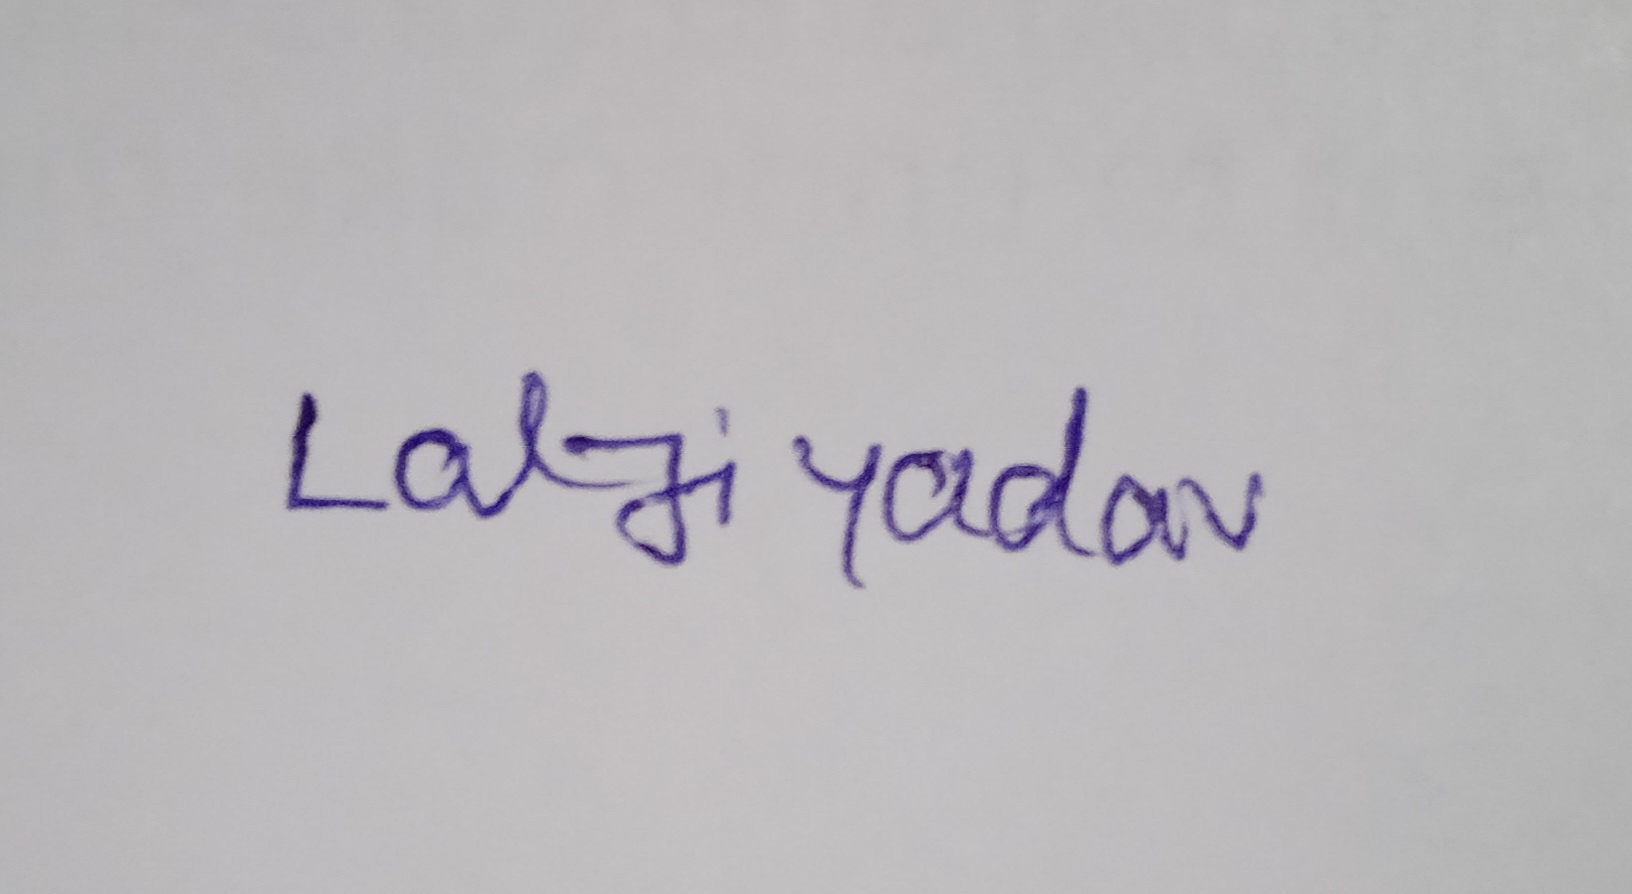 Lalji yadav